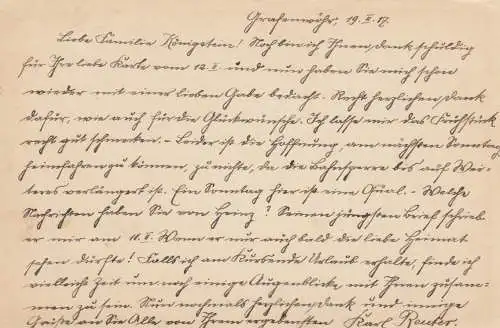 Grafenwöhr, 19. II. 17.
Liebe Familie Königstein! Noch bin ich Ihnen Dank schuldig
für Ihre liebe Karte vom 12. II. und nun haben Sie mich schon
wieder mit einer lieben Gabe bedacht. Recht herzlichen Dank
dafür, wie auch für die Glückwünsche. Ich lasse mir das Frühstück
recht gut schmecken. – Leider ist die Hoffnung, am nächsten Sonntag
heimfahren zu können, zunichte, da die Bahnsperre bis auf Wei-
teres verlängert ist. Ein Sonntag hier ist eine Qual. – Welche
Nachrichten haben Sie von Heinz? Seinen jüngsten Brief schrieb
er mir am 11. II. Wenn er nur auch bald die liebe Heimat
sehen dürfte! Falls ich am Kursende Urlaub erhalte, finde ich
vielleicht Zeit um noch einige Augenblicke mit Ihnen zusam-
men zu sein. Nun nochmals herzlichen Dank und innige
Grüße an Sie Alle von Ihrem ergebensten Karl